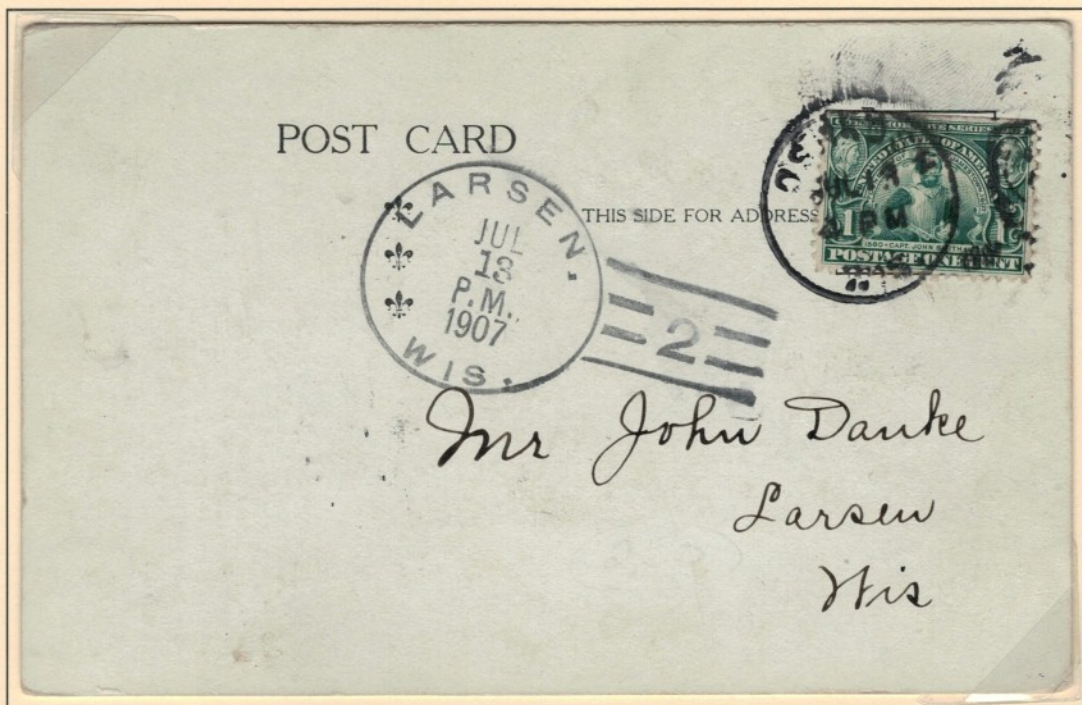 POST CARD
THIS SIDE FOR ADDRESS
LARSEN.
JUL
13
P.M.
1907
WIS.
2
JUL 13
PM
1580-CAPT. JOHN SMITH
1 1
POSTAGE ONE CENT
Mr John Danke
Larsen
Wis